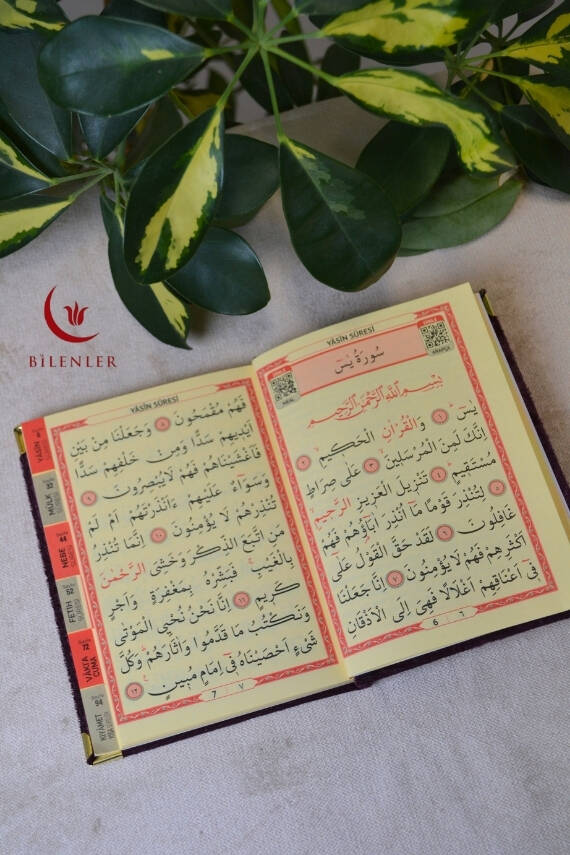 BİLENLER
YÂSİN SÛRESİ
MEAL
ARAPÇA
سُورَةُ يٰسٓ
بِسْمِ اللّٰهِ الرَّحْمٰنِ الرَّحِيمِ
يٰسٓ ۚ ١ وَالْقُرْاٰنِ الْحَكِيمِ ۙ ٢
اِنَّكَ لَمِنَ الْمُرْسَلِينَ ۙ ٣ عَلٰى صِرَاطٍ
مُسْتَقِيمٍ ۜ ٤ تَنْزِيلَ الْعَزِيزِ الرَّحِيمِ ۙ
٥ لِتُنْذِرَ قَوْمًا مَٓا اُنْذِرَ اٰبَٓاؤُ۬هُمْ فَهُمْ
غَافِلُونَ ٦ لَقَدْ حَقَّ الْقَوْلُ عَلٰٓى
اَكْثَرِهِمْ فَهُمْ لَا يُؤْمِنُونَ ٧ اِنَّا جَعَلْنَا
فِٓى اَعْنَاقِهِمْ اَغْلَالًا فَهِىَ اِلَى الْاَذْقَانِ
6 ٦
YÂSİN SÛRESİ
فَهُمْ مُقْمَحُونَ ٨ وَجَعَلْنَا مِنْ بَيْنِ
اَيْدِيهِمْ سَدًّا وَمِنْ خَلْفِهِمْ سَدًّا
فَاَغْشَيْنَاهُمْ فَهُمْ لَا يُبْصِرُونَ ٩
وَسَوَٓاءٌ عَلَيْهِمْ ءَاَنْذَرْتَهُمْ اَمْ لَمْ
تُنْذِرْهُمْ لَا يُؤْمِنُونَ ١٠ اِنَّمَا تُنْذِرُ
مَنِ اتَّبَعَ الذِّكْرَ وَخَشِىَ الرَّحْمٰنَ
بِالْغَيْبِ ۚ فَبَشِّرْهُ بِمَغْفِرَةٍ وَاَجْرٍ
كَرِيمٍ ١١ اِنَّا نَحْنُ نُحْيِ الْمَوْتٰى
وَنَكْتُبُ مَا قَدَّمُوا وَاٰثَارَهُمْ ۜ وَكُلَّ
شَىْءٍ اَحْصَيْنَاهُ فِٓى اِمَامٍ مُبِينٍ ۟ ١٢
7 ٧
YÂSİN
MÜLK
NEBE
44
FETİH
VÂKIA
CUMA
KIYÂMET